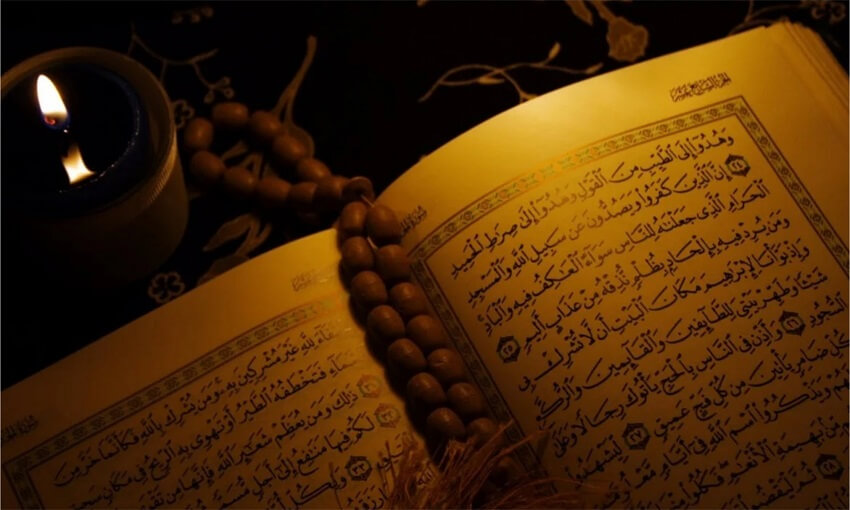 الجزء السابع عشر
وَهُدُوٓا۟ إِلَى ٱلطَّيِّبِ مِنَ ٱلْقَوْلِ وَهُدُوٓا۟ إِلَىٰ صِرَٰطِ ٱلْحَمِيدِ
٢٤ إِنَّ ٱلَّذِينَ كَفَرُوا۟ وَيَصُدُّونَ عَن سَبِيلِ ٱللَّهِ وَٱلْمَسْجِدِ
ٱلْحَرَامِ ٱلَّذِى جَعَلْنَٰهُ لِلنَّاسِ سَوَآءً ٱلْعَٰكِفُ فِيهِ وَٱلْبَادِ
وَمَن يُرِدْ فِيهِ بِإِلْحَادٍۭ بِظُلْمٍ نُّذِقْهُ مِنْ عَذَابٍ أَلِيمٍ ٢٥
وَإِذْ بَوَّأْنَا لِإِبْرَٰهِيمَ مَكَانَ ٱلْبَيْتِ أَن لَّا تُشْرِكْ بِى
شَيْـًٔا وَطَهِّرْ بَيْتِىَ لِلطَّآئِفِينَ وَٱلْقَآئِمِينَ وَٱلرُّكَّعِ
ٱلسُّجُودِ ٢٦ وَأَذِّن فِى ٱلنَّاسِ بِٱلْحَجِّ يَأْتُوكَ رِجَالًا وَعَلَىٰ
كُلِّ ضَامِرٍ يَأْتِينَ مِن كُلِّ فَجٍّ عَمِيقٍ ٢٧ لِّيَشْهَدُوا۟
وَيَذْكُرُوا۟ ٱسْمَ ٱللَّهِ فِىٓ أَيَّامٍ
مِّنۢ بَهِيمَةِ ٱلْأَنْعَٰمِ فَكُلُوا۟
٢٨ ثُمَّ لْيَقْضُوا۟
سورة الحج
لِلَّهِ غَيْرَ مُشْرِكِينَ بِهِۦ وَمَن يُشْرِكْ بِٱللَّهِ فَكَأَنَّمَا خَرَّ مِنَ
فَتَخْطَفُهُ ٱلطَّيْرُ أَوْ تَهْوِى بِهِ ٱلرِّيحُ فِى مَكَانٍ
٣١ ذَٰلِكَ وَمَن يُعَظِّمْ شَعَٰٓئِرَ ٱللَّهِ فَإِنَّهَا مِن
٣٢ لَكُمْ فِيهَا مَنَٰفِعُ إِلَىٰٓ أَجَلٍ مُّسَمًّى
٣٣ وَلِكُلِّ